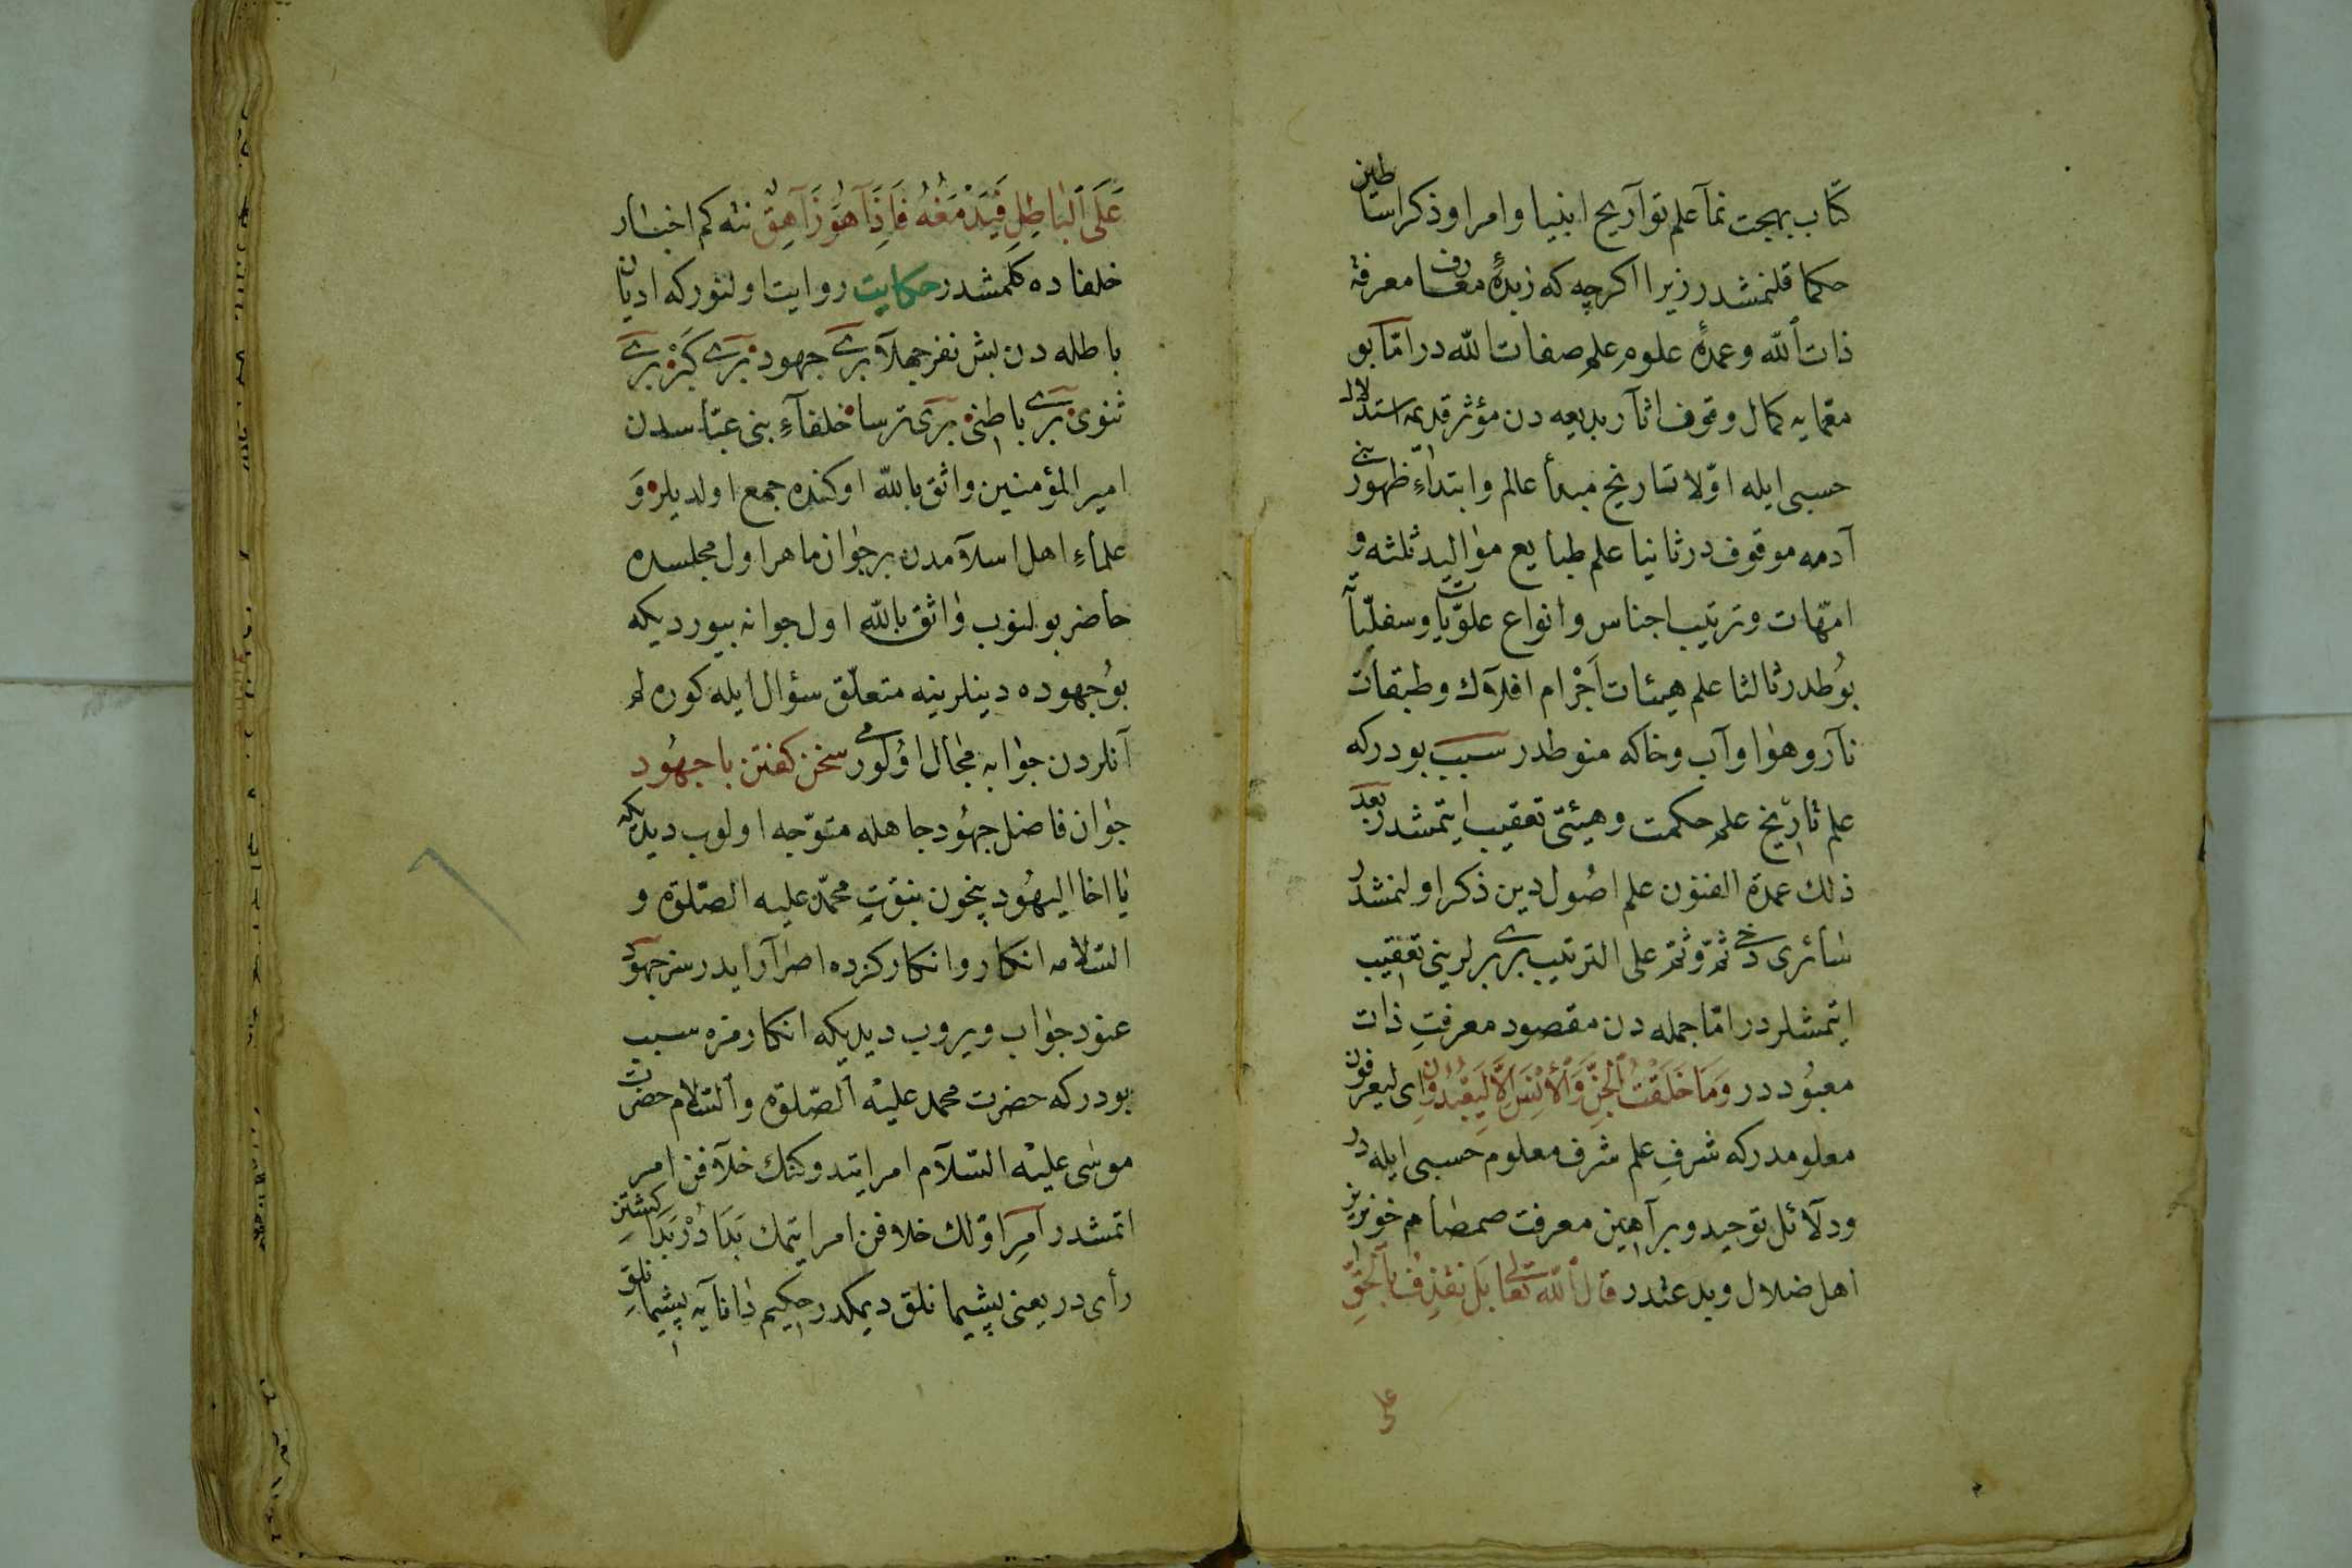 كتاب بهجت نمآ علم توآريخ انبيا وامرا وذكر اساطين
حكما قلنمشدر زيرا اكرچه كه زبدۀ معارف معرفة
ذات ٱلله وعمدۀ علوم علم صفات الله در امّا بو
مقامايه كمال وقوف اثآر بديعه دن مؤثر قديمه استدلال
حسبى ايله اوّلا تاريخ مبدأ عالم وابتداءِ ظهور بنى
آدمه موقوف در ثانيا علم طبايع مواليد ثلثه و
امّهات وترتيب اجناس وانواع علوّيات وسفليّاته
بوُطدر ثالثا علم هيئات اَجْرام افلاك وطبقات
نآر وهوا وآب وخاكه منوطدر سبب بودركه
علم تاريخ علم حكمت وهيئتى تعقيب ايتمشدر بعد
ذلك عمدة الفنون علم اصُول دين ذكر اولنمشدر
سائرى دخى ثمّ وثمّ على الترتيب برى برلرينى تعقيب
ايتمشلردر امّا جمله دن مقصود معرفتِ ذات
معبُود در وَمَا خَلَقْتُ ٱلْجِنَّ وَٱلْأِنْسَ اِلَّا لِيَعْبُدُونِ اى ليعرفون
معلومدركه شرفِ علم شرف معلوم حسبى ايله در
ودلآئل توحيد وبرآهين معرفت صمصام خونريز
اهل ضلال وبدعتدر قال ٱلله تعالى بَلْ نَقْذِفُ بِٱلْحَقِّ
على
عَلَى ٱلْبَاطِلِ فَيَدْمَغُهُ فَاِذَا هُوَ زَاهِقٌ نته كم اخبار
خلفاده كلمشدر حكايت روايت اولنوركه اديان
باطله دن بش نفر جهلآ برى جهود برى كَبْر برى
ثنوى برى باطنى برى ترسا خلفآءِ بنى عبّاسدن
امير المؤمنين واثق بالله اوكنده جمع اولديلر وَ
علماءِ اهل اسلآمدن بر جوان ماهر اول مجلسده
حاضر بولنوب واثق بالله اول جوانه بيورديكه
بوُ جهوده دينلرينه متعلّق سؤال ايله كوره لم
آنلردن جوابه مجال اوُلورمى سخن كفتن با جهُود
جوان فاضل جهُود جاهله متوّجه اولوب ديديكه
يا اخا اليهُود يچون نبوّتِ محمّد عليه الصّلوة و
السّلامه انكار وانكاركزده اصرآر ايدرسز جهود
عنود جواب ويروب ديديكه انكارمزه سبب
بودركه حضرت محمد عليه ٱلصّلوة وٱلسّلام حضرت
موسٰى عليه السّلآم امر ايتدوكنك خلآفن امر
اتمشدر آمرِ اوّلك خلافن امر ايتمك بَدَا دُرْ بَدَا كشتنِ
رأى در يعنى پشيمانلق ديمكدر حكيم دانايه پشيمانلق